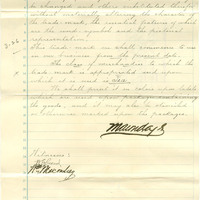 be changed and others substituted therefor
without materially altering the character of
the trade-mark, the essential feature of which
are the word symbol and the pictorial
representation.
This trade mark we shall commence to use
in our business from the present date.
The class of merchandise to which the
trade-mark is appropriated and upon
which it is used is
We shall print it in colors upon labels
which are used upon packages containing
the goods, and it may also be stenciled
or otherwise marked upon the packages.
Macondray
Witnesses:
Macondray